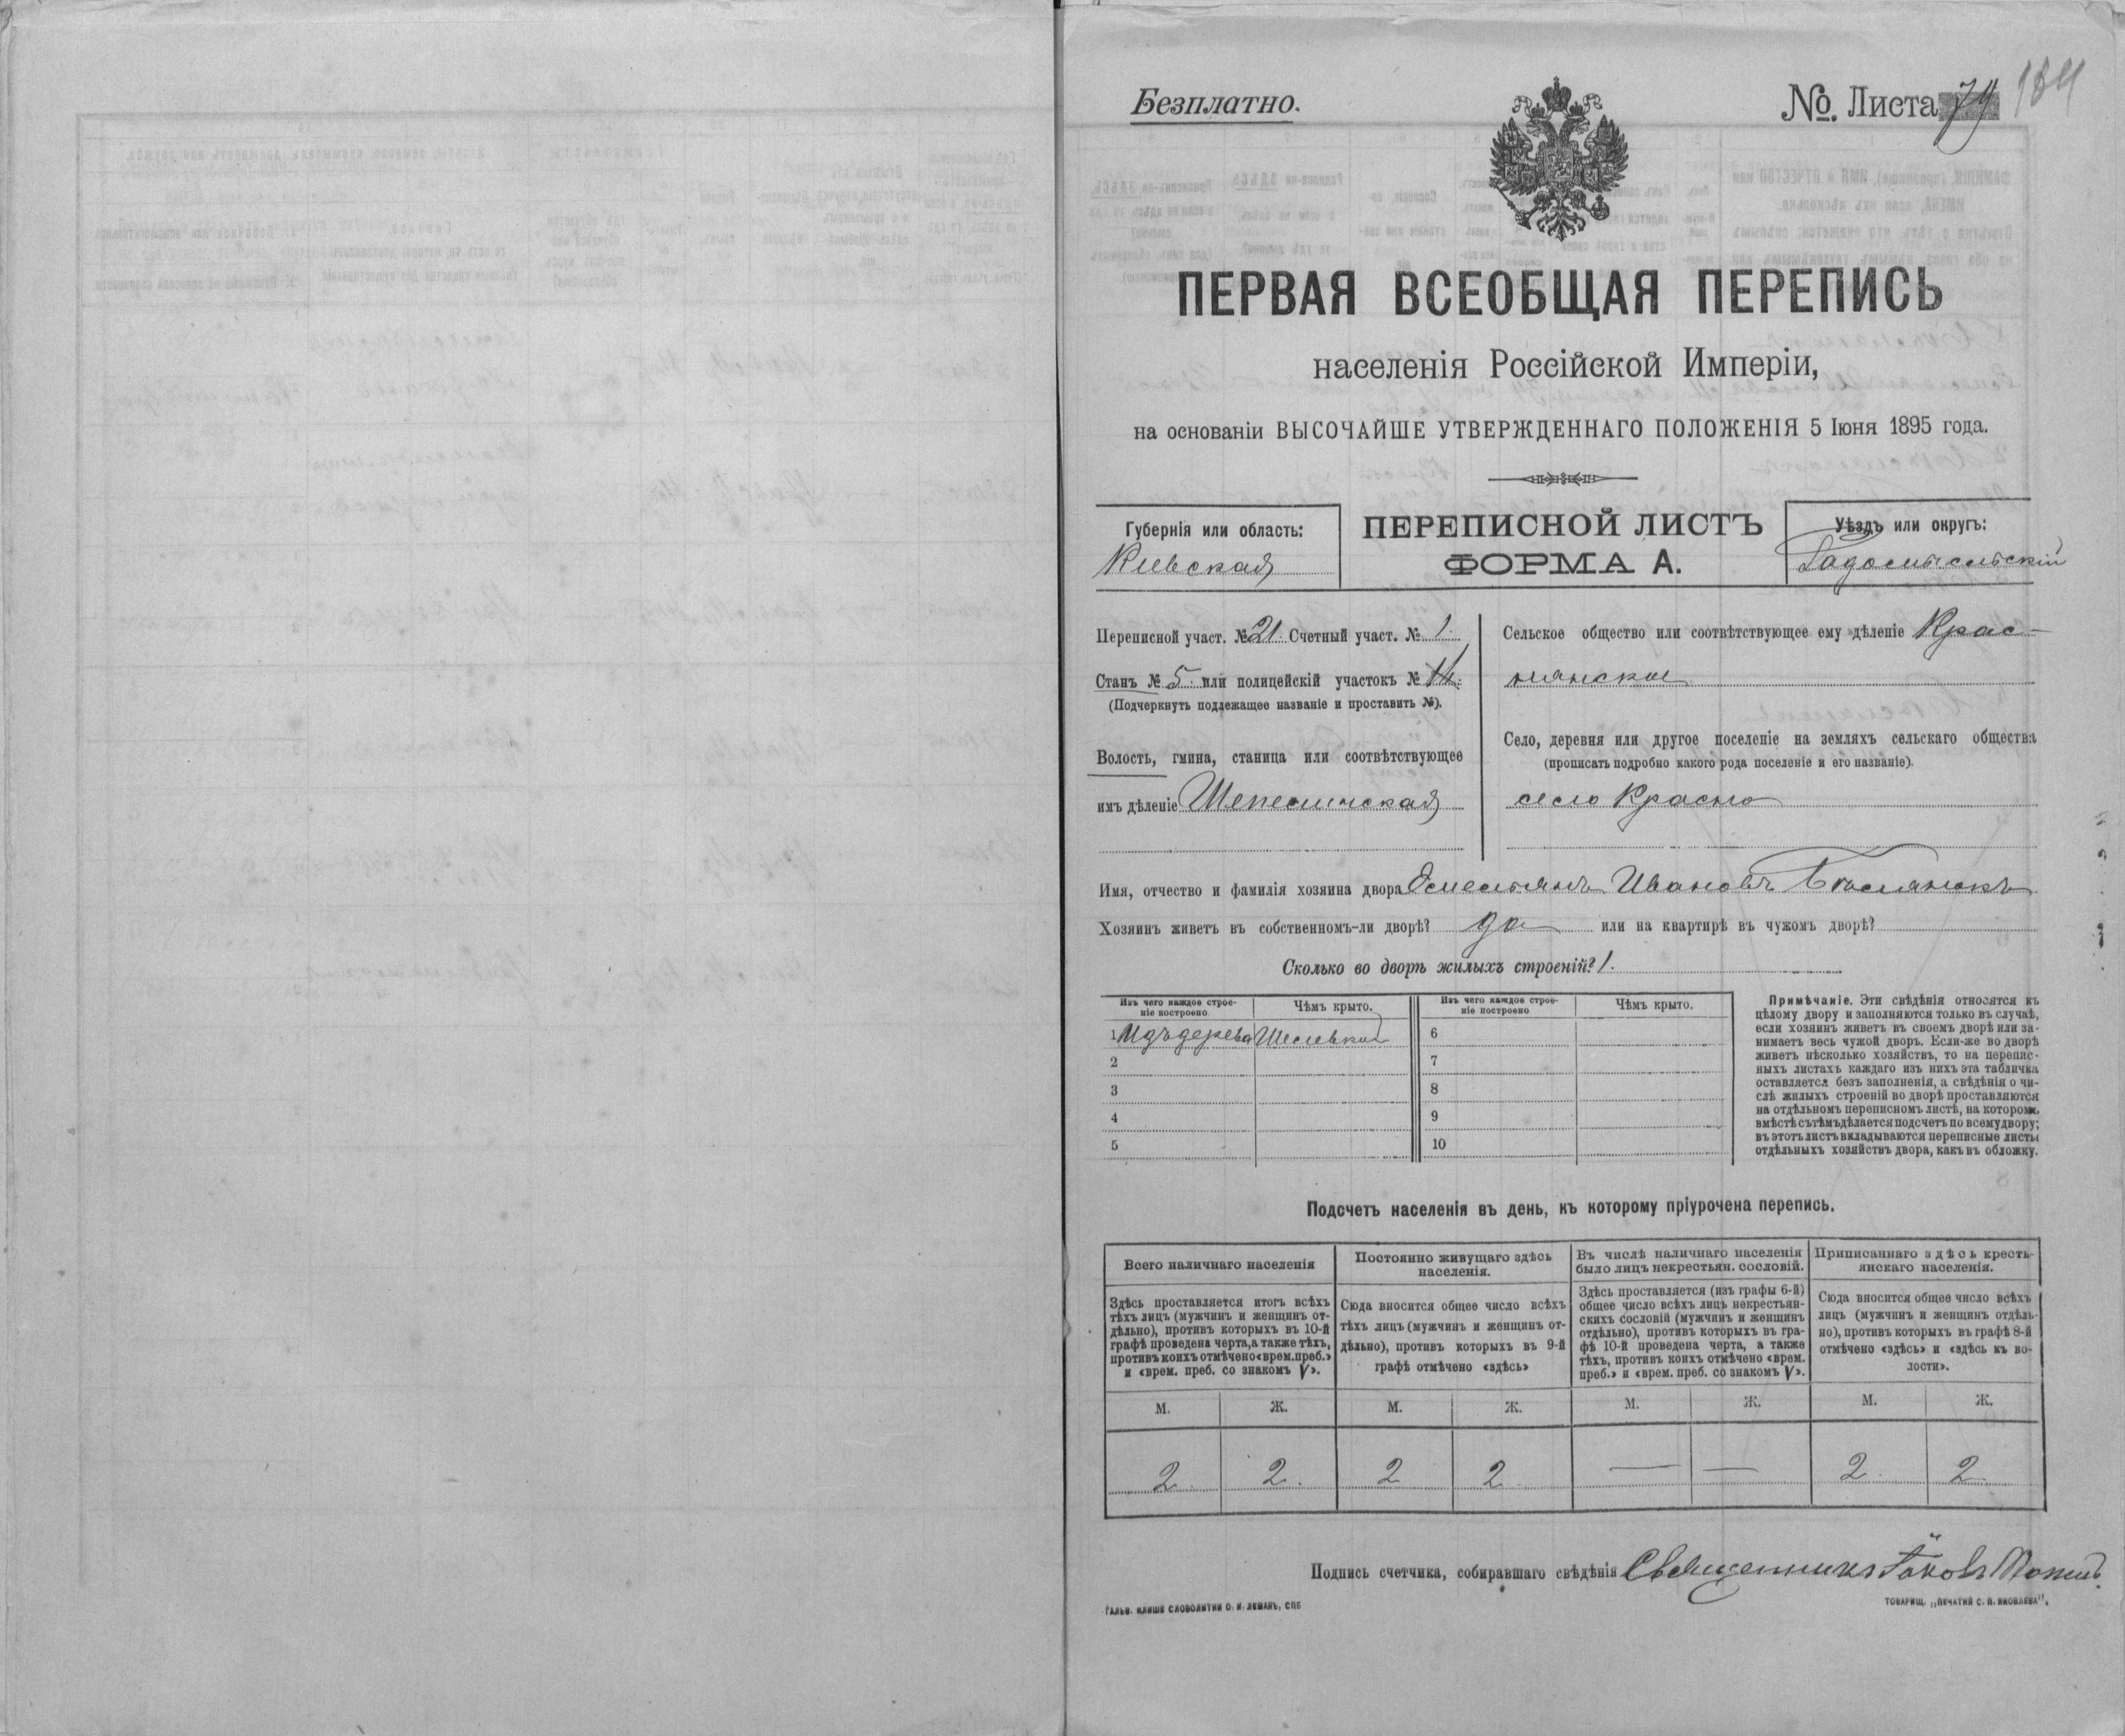 Безплатно.
№. Листа 79 184
ПЕРВАЯ ВСЕОБЩАЯ ПЕРЕПИСЬ
населенія Россійской Имперіи,
на основаніи ВЫСОЧАЙШЕ УТВЕРЖДЕННАГО ПОЛОЖЕНІЯ 5 Іюня 1895 года.
Губернія или область:
Кіевская
ПЕРЕПИСНОЙ ЛИСТЪ
ФОРМА А.
Уѣздъ или округъ:
Радомысльскій
Переписной участ. № 21. Счетный участ. № 1.
Станъ № 5. или полицейскій участокъ №
(Подчеркнуть подлежащее названіе и проставить №).
Волость, гмина, станица или соотвѣтствующее
имъ дѣленіе Шепеличская
Сельское общество или соотвѣтствующее ему дѣленіе Крас-
нянское
Село, деревня или другое поселеніе на земляхъ сельскаго общества
(прописать подробно какого рода поселеніе и его названіе).
село Красно
Имя, отчество и фамилія хозяина двора Емельянъ Ивановъ
Хозяинъ живетъ въ собственномъ-ли дворѣ? да или на квартирѣ въ чужомъ дворѣ?
Сколько во дворѣ жилыхъ строеній? 1.
Изъ чего каждое строе-
ніе построено
Чѣмъ крыто.
Изъ чего каждое строе-
ніе построено
Чѣмъ крыто.
1 Изъ дерева Шелевкой
2
3
4
5
6
7
8
9
10
Примѣчаніе. Эти свѣдѣнія относятся къ
цѣлому двору и заполняются только въ случаѣ,
если хозяинъ живетъ въ своемъ дворѣ или за-
нимаетъ весь чужой дворъ. Если-же во дворѣ
живетъ нѣсколько хозяйствъ, то на перепис-
ныхъ листахъ каждаго изъ нихъ эта табличка
оставляется безъ заполненія, а свѣдѣнія о чи-
слѣ жилыхъ строеній во дворѣ проставляются
на отдѣльномъ переписномъ листѣ, на которомъ
вмѣстѣ съ тѣмъ дѣлается подсчетъ по всему двору;
въ этотъ листъ вкладываются переписные листы
отдѣльныхъ хозяйствъ двора, какъ въ обложку.
Подсчетъ населенія въ день, къ которому пріурочена перепись.
Всего наличнаго населенія
Здѣсь проставляется итогъ всѣхъ
тѣхъ лицъ (мужчинъ и женщинъ от-
дѣльно), противъ которыхъ въ 10-й
графѣ проведена черта, а также тѣхъ,
противъ коихъ отмѣчено «врем. преб.»
и «врем. преб. со знакомъ V».
Постоянно живущаго здѣсь
населенія.
Сюда вносится общее число всѣхъ
тѣхъ лицъ (мужчинъ и женщинъ от-
дѣльно), противъ которыхъ въ 9-й
графѣ отмѣчено «здѣсь»
Въ числѣ наличнаго населенія
было лицъ некрестьян. сословій.
Здѣсь проставляется (изъ графы 6-й)
общее число всѣхъ лицъ некрестьян-
скихъ сословій (мужчинъ и женщинъ
отдѣльно), противъ которыхъ въ гра-
фѣ 10-й проведена черта, а также
тѣхъ, противъ коихъ отмѣчено «врем.
преб.» и «врем. преб. со знакомъ V».
Приписаннаго здѣсь кресть-
янскаго населенія.
Сюда вносится общее число всѣхъ
лицъ (мужчинъ и женщинъ отдѣль-
но), противъ которыхъ въ графѣ 8-й
отмѣчено «здѣсь» и «здѣсь къ во-
лости».
М. Ж. М. Ж. М. Ж. М. Ж.
2. 2. 2 2 — — 2. 2
Подпись счетчика, собиравшаго свѣдѣнія Священникъ Іаковъ
ГАЛЬВ. КЛИШЕ СЛОВОЛИТНИ О. И. ЛЕМАНЪ, СПБ
ТОВАРИЩ. „ПЕЧАТНЯ С. П. ЯКОВЛЕВА".